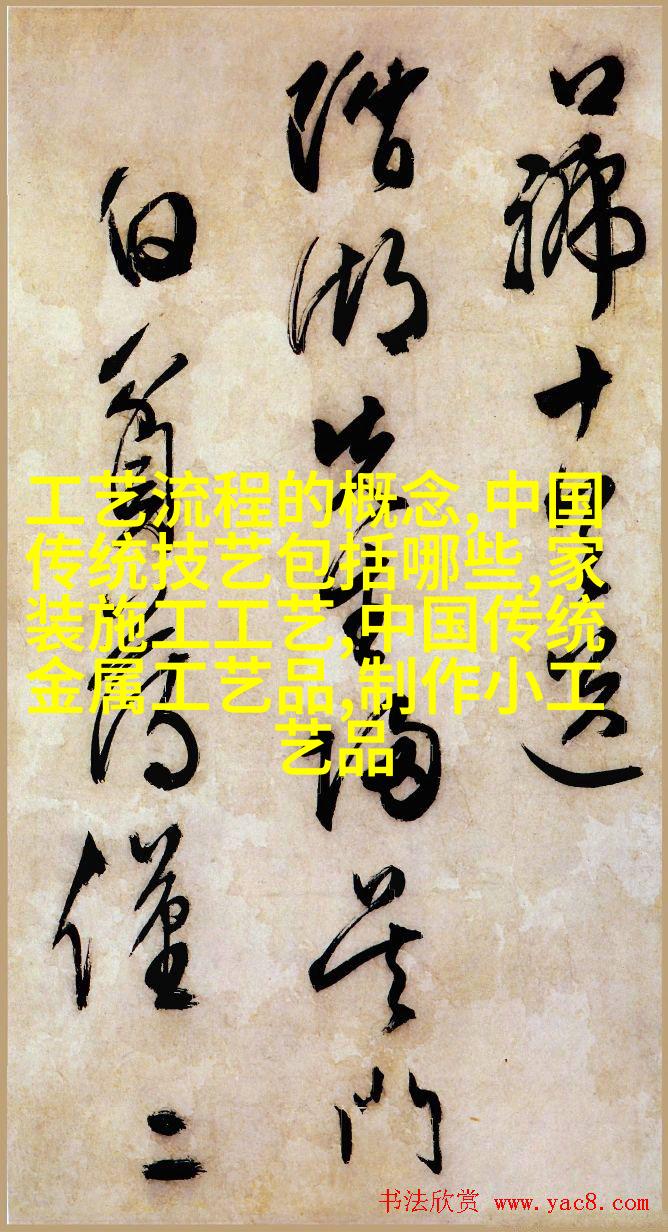 口號十
湖先生歸吳門
白翁僅二
工艺流程的概念,中国
传统技艺包括哪些,家
装施工工艺,中国传统
金属工艺品,制作小工
艺品
书法欣赏 www.yac8.com